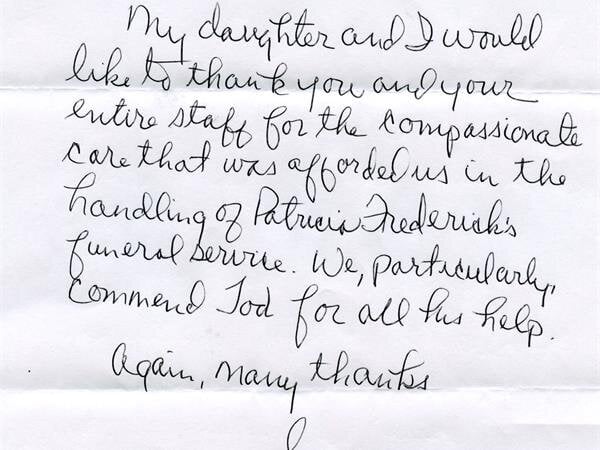 My daughter and I would
like to thank you and your
entire staff for the compassionate
care that was afforded us in the
handling of Patricia Frederick's
funeral service. We, particularly,
commend Tod for all his help.
Again, many thanks